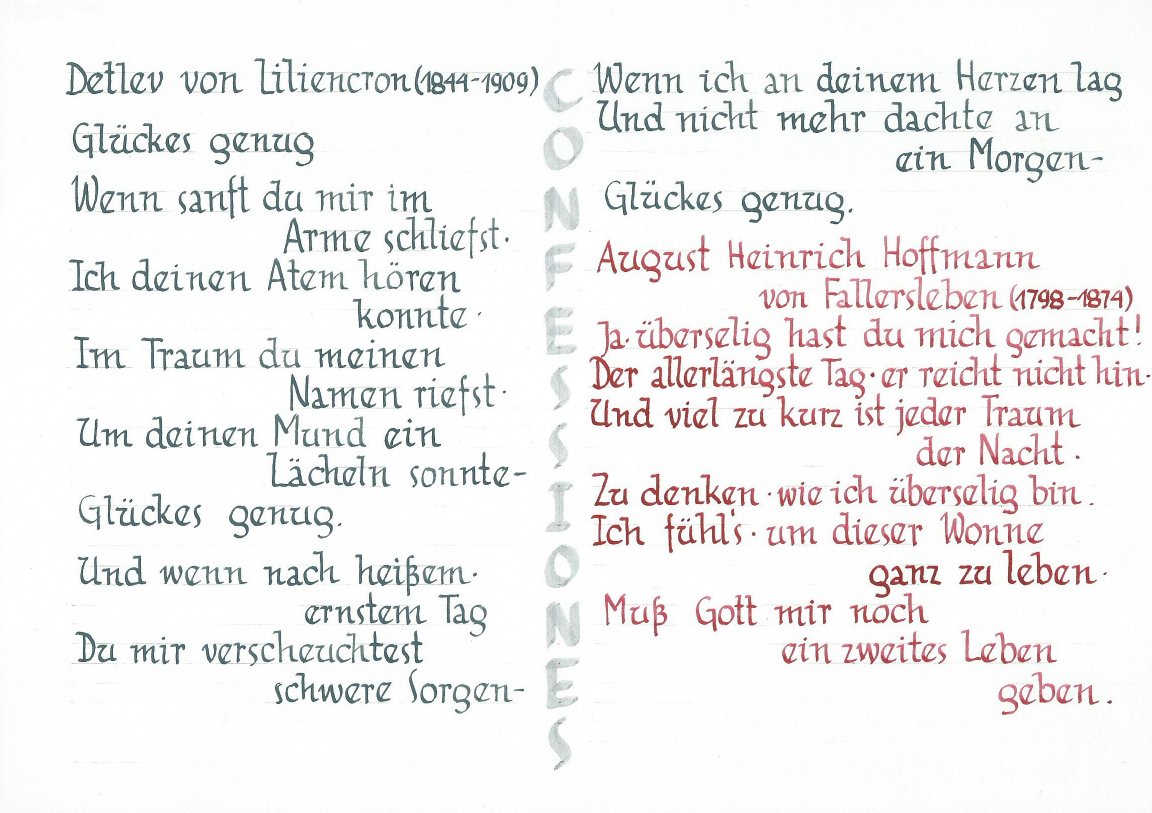 Detlev von Liliencron (1844-1909)
Glückes genug
Wenn sanft du mir im
Arme schliefst·
Ich deinen Atem hören
konnte·
Im Traum du meinen
Namen riefst·
Um deinen Mund ein
Lächeln sonnte-
Glückes genug.
Und wenn nach heißem·
ernstem Tag
Du mir verscheuchtest
schwere Sorgen-
CONFESSIONES
Wenn ich an deinem Herzen lag
Und nicht mehr dachte an
ein Morgen-
Glückes genug.
August Heinrich Hoffmann
von Fallersleben (1798-1874)
Ja·überselig hast du mich gemacht!
Der allerlängste Tag·er reicht nicht hin·
Und viel zu kurz ist jeder Traum
der Nacht·
Zu denken·wie ich überselig bin.
Ich fühl's·um dieser Wonne
ganz zu leben·
Muß Gott mir noch
ein zweites Leben
geben.